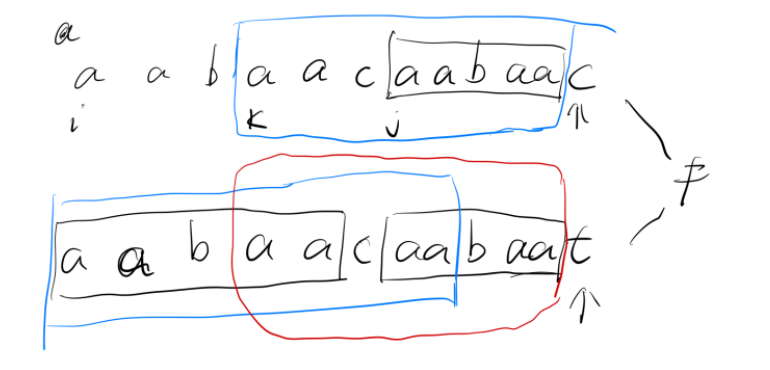 a
a a b a a c a a b a a c
i k j ↑
a a b a a c a a b a a t
↑